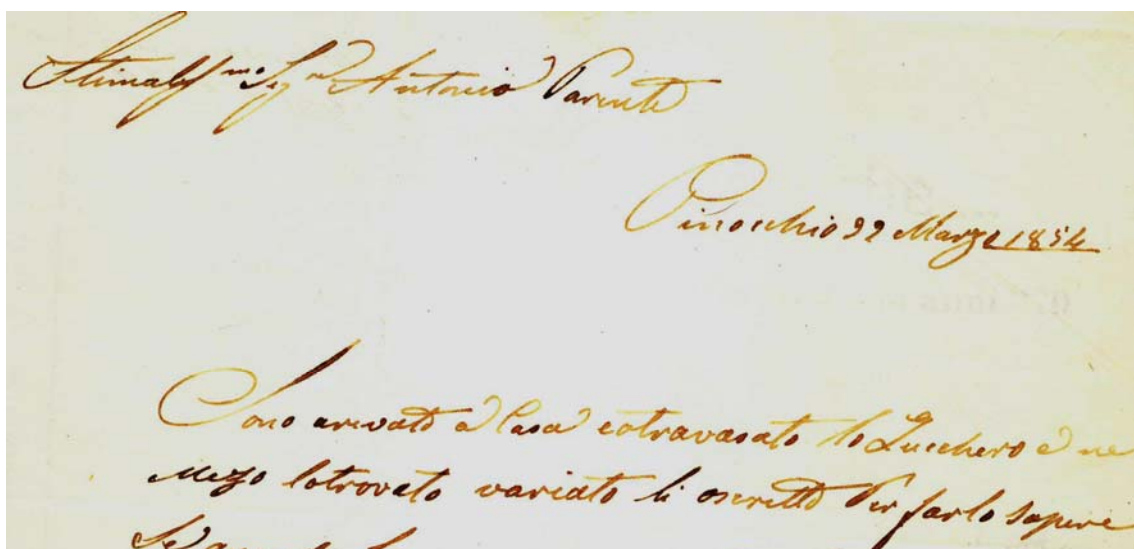 Stimatss.mo Sig.r Antonio Parente
Pinocchio 22 Marzo 1854
Sono arivato à Casa cotravasato lo Zucchero è ne
mezo lotrovato variato li oscritto Per farlo Sapere